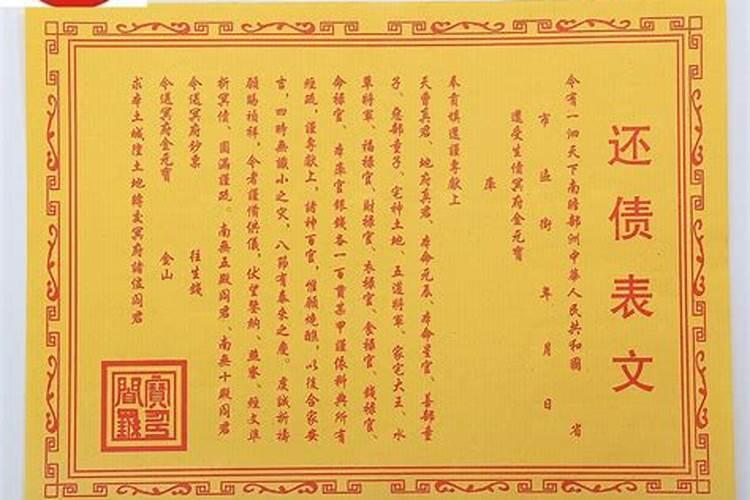 还债表文
今有一泗天下南瞻部洲中華人民共和國 省
市 區 街 年 月 日
還受生債冥府金元寶
庫
奉育填還謹專献上
天曹真君、地府真君、本命元辰、本命星官、善部童
子、惡部童子、宅神土地、五道將軍、家宅大王、水
草將軍、福禄官、財禄官、衣禄官、食禄官、錢禄官、
命禄官、本庫官銀錢各一百貫某甲謹依科典所有
經疏，謹專献上，諸神百官，惟願燒醮，以後合家安
吉，四時無讖小之灾，八節有泰來之慶。虔誠祈禱
願賜禎祥，令者謹備供儀，伏望鑒納、燕察、經文準
折冥債、圆滿謹疏。南無五殿阎君、南無十殿阎君
令送冥府鈔票 往生錢
令送冥府金元寶 金山
求本土城隍土地轉交冥府諸位阎君